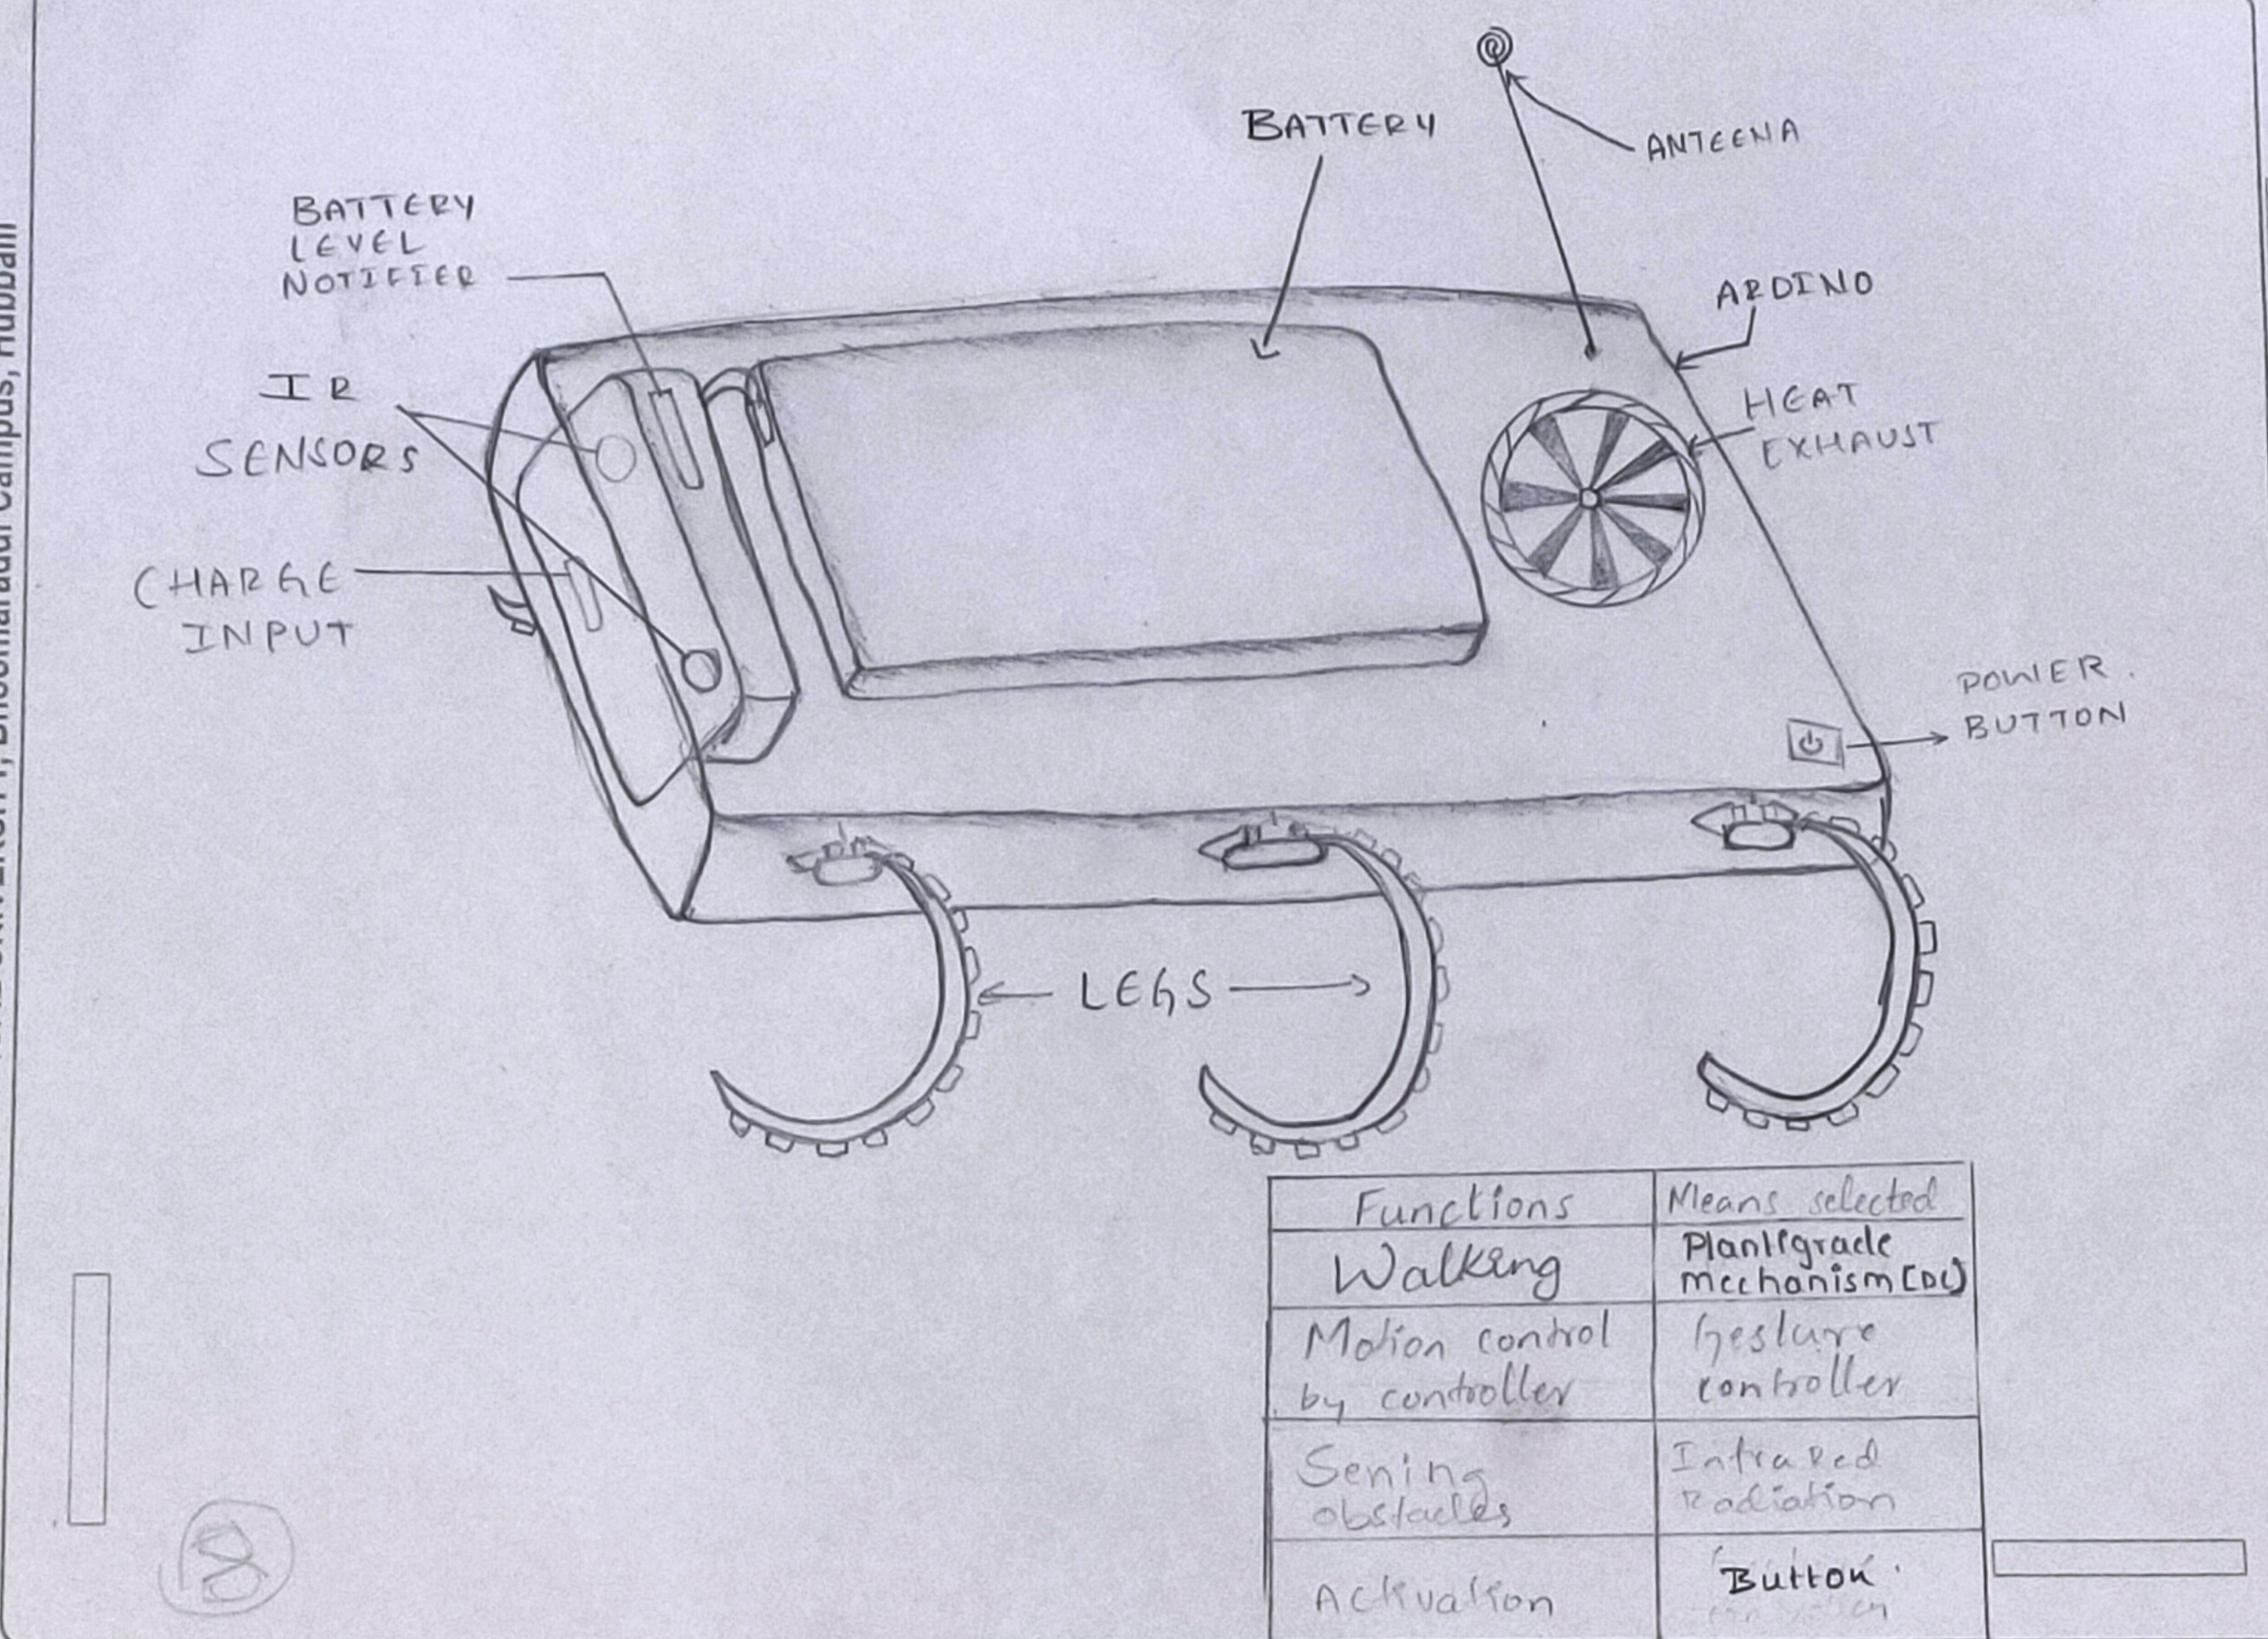 BATTERY
ANTEENA
BATTERY
LEVEL
NOTIFIER
ARDINO
IR
SENSORS
HEAT
EXHAUST
CHARGE
INPUT
POWER
BUTTON
LEGS
Functions
Means selected
Walking
Plantigrade
mechanism (DC)
Motion control
by controller
Gesture
controller
Sening
obstacles
InfraRed
Radiation
Activation
Button
8
Campus, Hubballi